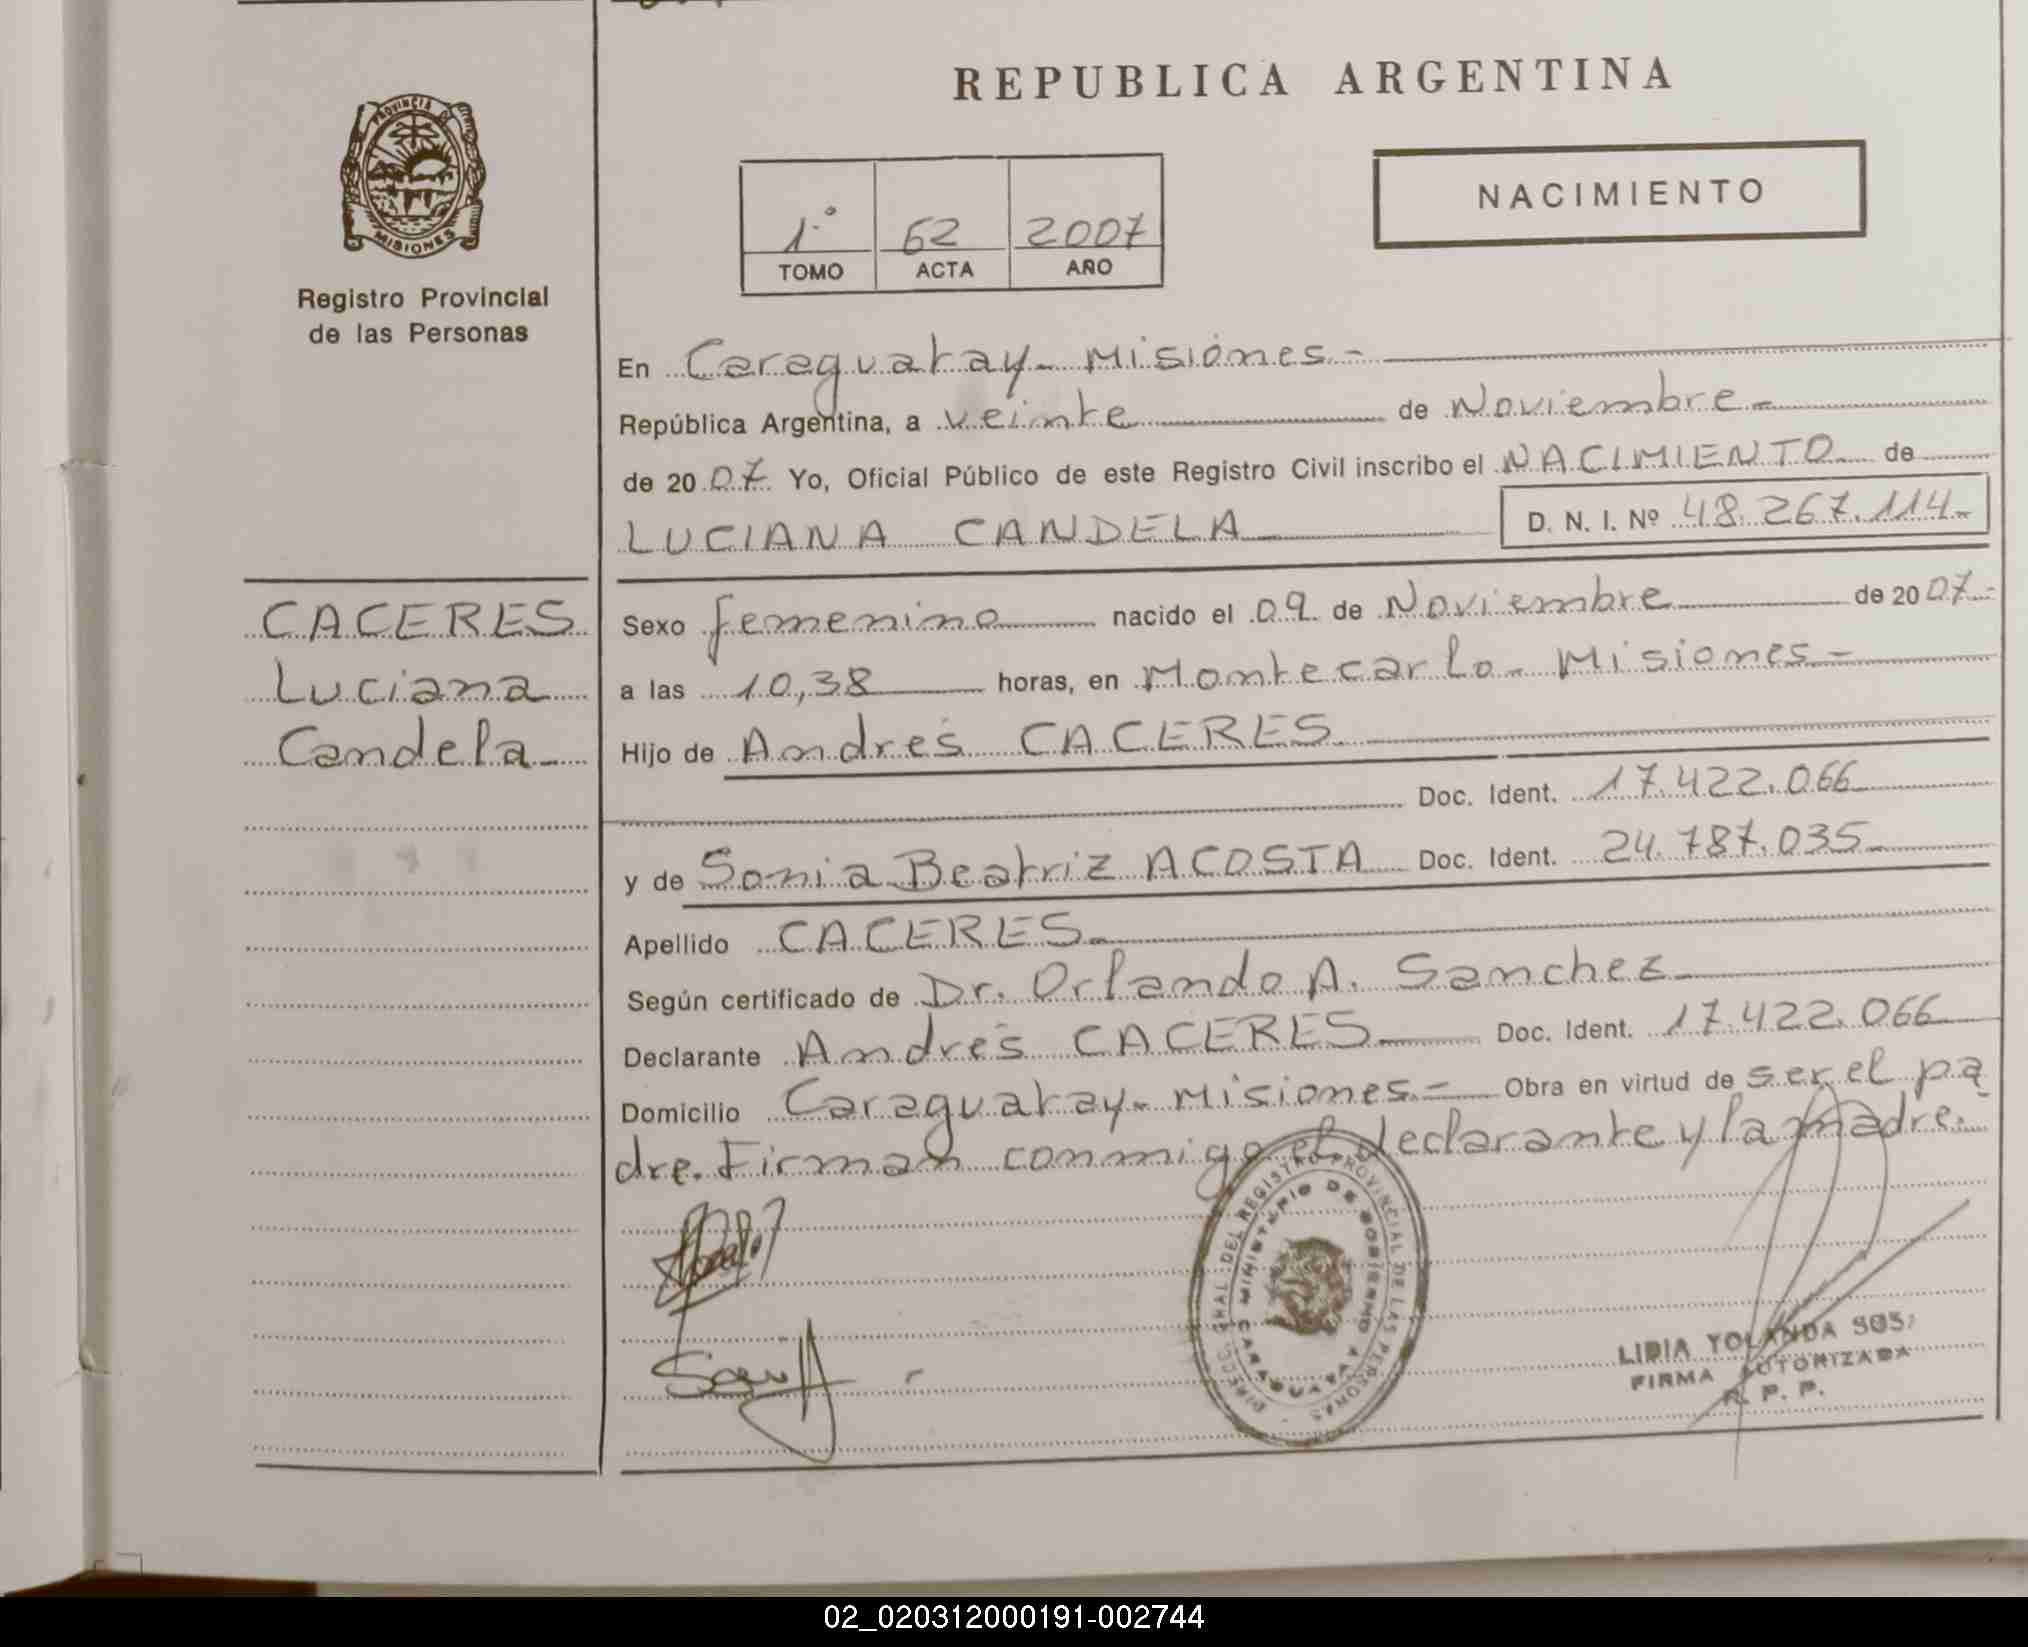 REPUBLICA ARGENTINA
PROVINCIA DE
MISIONES
Registro Provincial
de las Personas
NACIMIENTO
1º 62 2007
TOMO ACTA AÑO
En Caraguatay - Misiones.-
República Argentina, a veinte de Noviembre-
de 2007 Yo, Oficial Público de este Registro Civil inscribo el NACIMIENTO de
LUCIANA CANDELA D. N. I. Nº 48.267.114-
CACERES
Luciana
Candela-
Sexo femenino nacido el 09 de Noviembre de 2007-
a las 10,38 horas, en Montecarlo - Misiones-
Hijo de Andrés CACERES
Doc. Ident. 17.422.066
y de Sonia Beatriz ACOSTA Doc. Ident. 24.787.035-
Apellido CACERES-
Según certificado de Dr. Orlando A. Sanchez
Declarante Andrés CACERES Doc. Ident. 17.422.066
Domicilio Caraguatay - Misiones- Obra en virtud de ser el pa
dre. Firman conmigo el declarante y la madre.
DIRECC. GRAL. DEL REGISTRO PROVINCIAL DE LAS PERSONAS
MINISTERIO DE GOBIERNO
CARAGUATAY
LIDIA YOLANDA
FIRMA AUTORIZADA
R. P. P.
02_020312000191-002744